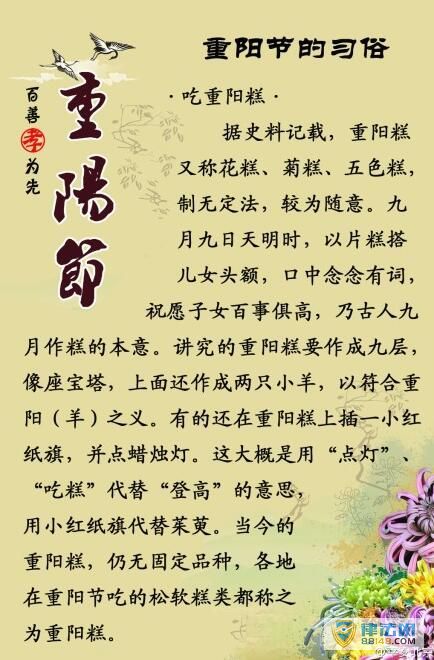 重阳节的习俗
百善孝为先
重陽節
·吃重阳糕·
据史料记载，重阳糕
又称花糕、菊糕、五色糕，
制无定法，较为随意。九
月九日天明时，以片糕搭
儿女头额，口中念念有词，
祝愿子女百事俱高，乃古人九
月作糕的本意。讲究的重阳糕要作成九层，
像座宝塔，上面还作成两只小羊，以符合重
阳（羊）之义。有的还在重阳糕上插一小红
纸旗，并点蜡烛灯。这大概是用“点灯”、
“吃糕”代替“登高”的意思，
用小红纸旗代替茱萸。当今的
重阳糕，仍无固定品种，各地
在重阳节吃的松软糕类都称之
为重阳糕。
律法网
88148.com